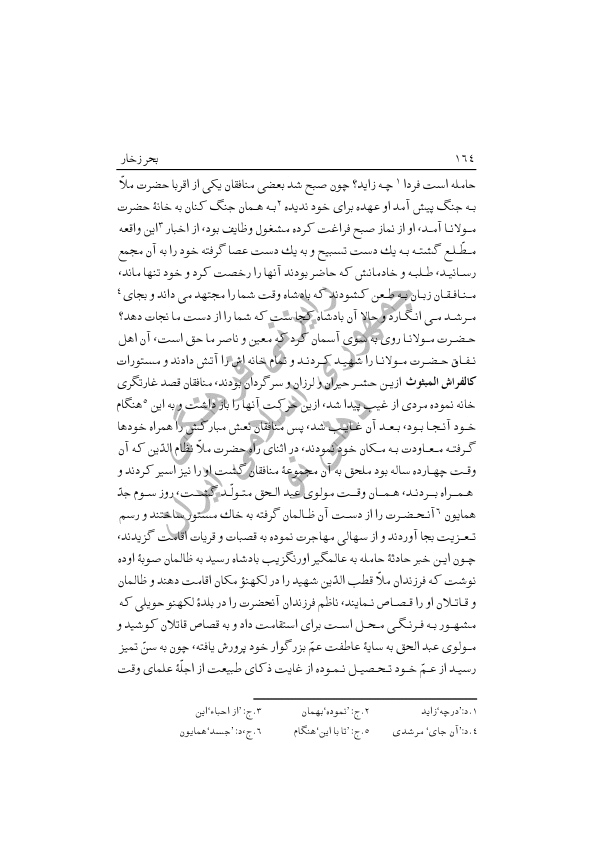 ۱٦٤ بحر زخار
حامله است فردا ۱ چه زاید؟ چون صبح شد بعضی منافقان یکی از اقربا حضرت ملاّ
به جنگ پیش آمد او عهده برای خود ندیده ۲ به همان جنگ کنان به خانهٔ حضرت
مولانا آمد، او از نماز صبح فراغت کرده مشغول وظایف بود، از اخبار ۳ این واقعه
مطّلع گشته به یك دست تسبیح و به یك دست عصا گرفته خود را به آن مجمع
رسانید، طلبه و خادمانش که حاضر بودند آنها را رخصت کرد و خود تنها ماند،
منافقان زبان به طعن کشودند که بادشاه وقت شما را مجتهد می داند و بجای ٤
مرشد می انگارد و حالا آن بادشاه کجاست که شما را از دست ما نجات دهد؟
حضرت مولانا روی به سوی آسمان کرد که معین و ناصر ما حق است، آن اهل
نفاق حضرت مولانا را شهید کردند و تمام خانه اش را آتش دادند و مستورات
کالفراش المبثوث ازین حشر حیران و لرزان و سرگردان بودند، منافقان قصد غارتگری
خانه نموده مردی از غیب پیدا شد، ازین حرکت آنها را باز داشت و به این ٥ هنگام
خود آنجا بود، بعد آن غایب شد، پس منافقان نعش مبارکش را همراه خودها
گرفته معاودت به مکان خود نمودند، در اثنای راه حضرت ملاّ نظام الدّین که آن
وقت چهارده ساله بود ملحق به آن مجموعهٔ منافقان گشت او را نیز اسیر کردند و
همراه بردند، همان وقت مولوی عبد الحق متولّد گشت، روز سوم جدّ
همایون ٦ آنحضرت را از دست آن ظالمان گرفته به خاك مستور ساختند و رسم
تعزیت بجا آوردند و از سهالی مهاجرت نموده به قصبات و قریات اقامت گزیدند،
چون این خبر حادثهٔ حامله به عالمگیر اورنگزیب بادشاه رسید به ظالمان صوبهٔ اوده
نوشت که فرزندان ملاّ قطب الدّین شهید را در لکهنؤ مکان اقامت دهند و ظالمان
و قاتلان او را قصاص نمایند، ناظم فرزندان آنحضرت را در بلدهٔ لکهنو حویلی که
مشهور به فرنگی محل است برای استقامت داد و به قصاص قاتلان کوشید و
مولوی عبد الحق به سایهٔ عاطفت عمّ بزرگوار خود پرورش یافته، چون به سنّ تمیز
رسید از عمّ خود تحصیل نموده از غایت ذکای طبیعت از اجلّهٔ علمای وقت
۱.د:'درچه'زاید ۲.ج:'نموده'بهمان ۳.ج:'از احباء'این
٤.د:'آن جای' مرشدی ٥.ج:'تا با این'هنگام ٦.ج،د:'جسد'همایون